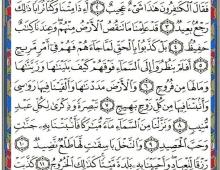 فَقَالَ ٱلْكَٰفِرُونَ هَٰذَا شَىْءٌ عَجِيبٌ ٢ أَءِذَا مِتْنَا وَكُنَّا تُرَابًا ذَٰلِكَ
رَجْعٌۢ بَعِيدٌ ٣ قَدْ عَلِمْنَا مَا تَنقُصُ ٱلْأَرْضُ مِنْهُمْ وَعِندَنَا كِتَٰبٌ
حَفِيظٌۢ ٤ بَلْ كَذَّبُوا۟ بِٱلْحَقِّ لَمَّا جَآءَهُمْ فَهُمْ فِىٓ أَمْرٍ مَّرِيجٍ
٥ أَفَلَمْ يَنظُرُوٓا۟ إِلَى ٱلسَّمَآءِ فَوْقَهُمْ كَيْفَ بَنَيْنَٰهَا وَزَيَّنَّٰهَا
وَمَا لَهَا مِن فُرُوجٍ ٦ وَٱلْأَرْضَ مَدَدْنَٰهَا وَأَلْقَيْنَا فِيهَا رَوَٰسِىَ
وَأَنۢبَتْنَا فِيهَا مِن كُلِّ زَوْجٍۭ بَهِيجٍ ٧ تَبْصِرَةً وَذِكْرَىٰ لِكُلِّ عَبْدٍ
مُّنِيبٍ ٨ وَنَزَّلْنَا مِنَ ٱلسَّمَآءِ مَآءً مُّبَٰرَكًا فَأَنۢبَتْنَا بِهِۦ جَنَّٰتٍ
وَحَبَّ ٱلْحَصِيدِ ٩ وَٱلنَّخْلَ بَاسِقَٰتٍ لَّهَا طَلْعٌ نَّضِيدٌ ١٠
رِّزْقًا لِّلْعِبَادِ وَأَحْيَيْنَا بِهِۦ بَلْدَةً مَّيْتًا كَذَٰلِكَ ٱلْخُرُوجُ ١١